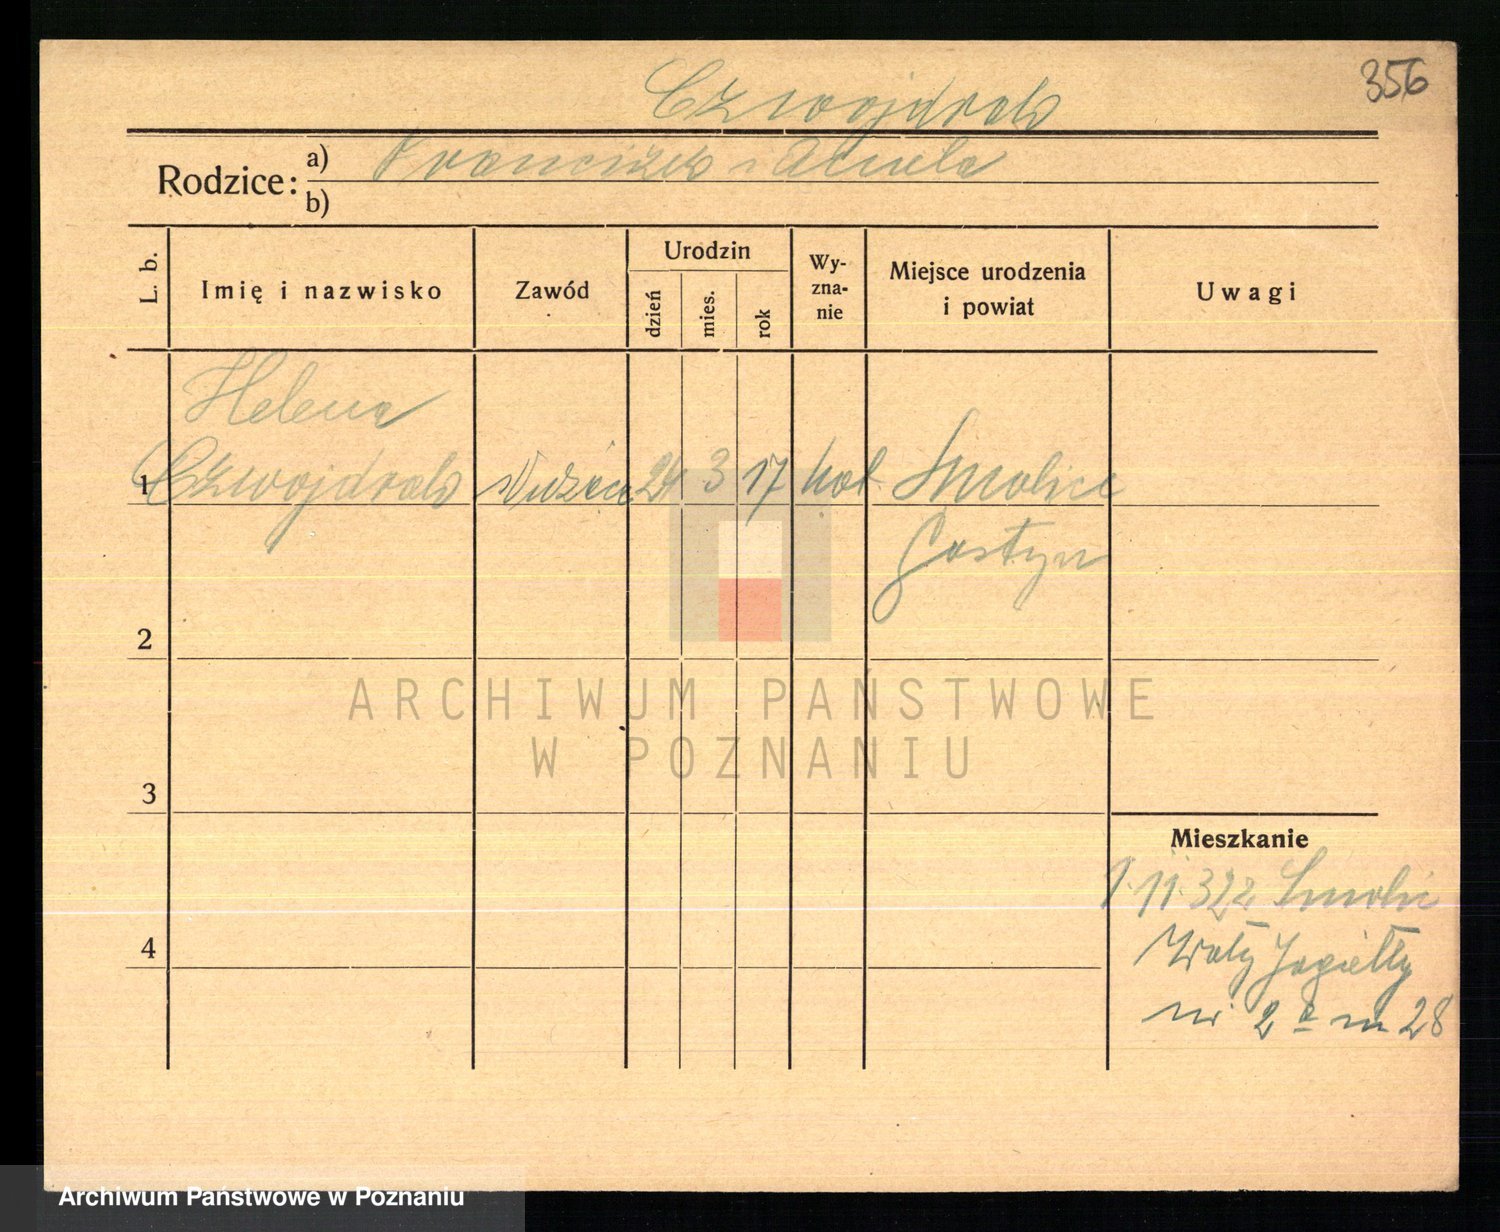 356
Czwojdrak
Rodzice:
a) Franciszek i Aniela
b)
L. b.
Imię i nazwisko
Zawód
Urodzin
dzień
mies.
rok
Wy-
zna-
nie
Miejsce urodzenia
i powiat
Uwagi
Helena
1 Czwojdrak 24 3 17 kat. Smolice
Gostyń
2
3
4
Mieszkanie
Smolic
Wały Jagiełły
nr 2 a m 28
ARCHIWUM PAŃSTWOWE
W POZNANIU
Archiwum Państwowe w Poznaniu